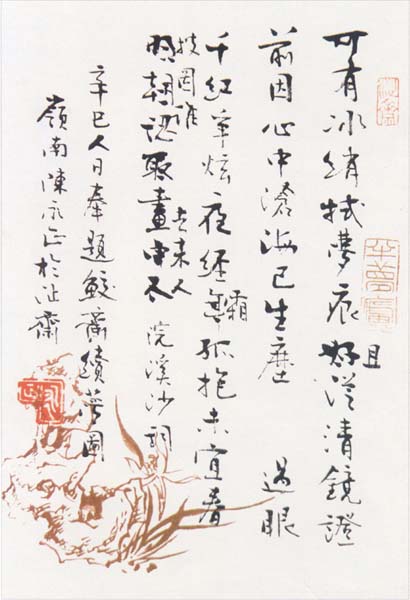 可有冰綃拭夢痕好且從清鏡證
前因心中滄海已生塵 過眼
千紅爭炫夜經年霜孤抱未宜春
認取畫中 浣溪沙詞
辛巳人日奉題鮫齋續夢圖
嶺南陳永正於沚齋